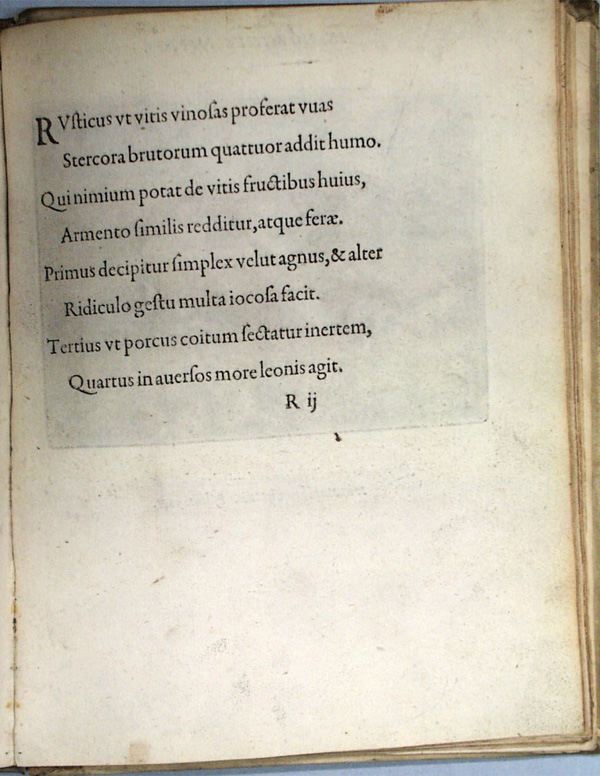 RVſticus vt vitis vinoſas proferat vuas
Stercora brutorum quattuor addit humo.
Qui nimium potat de vitis fructibus huius,
Armento ſimilis redditur, atque feræ.
Primus decipitur ſimplex velut agnus, & alter
Ridiculo geſtu multa iocoſa facit.
Tertius vt porcus coitum ſectatur inertem,
Quartus in auerſos more leonis agit.
R ij